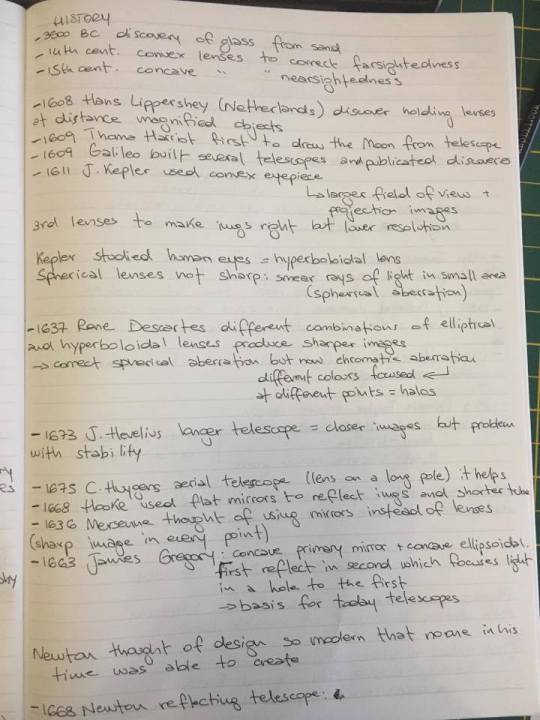 HISTORY
- 3500 BC discovery of glass from sand
- 14th cent. convex lenses to correct farsightedness
- 15th cent. concave " " nearsightedness
- 1608 Hans Lippershey (Netherlands) discover holding lenses
at distance magnified objects
- 1609 Thomas Hariot first to draw the Moon from telescope
- 1609 Galileo built several telescopes and publicated discoveries
- 1611 J. Kepler used convex eyepiece
↳ larger field of view +
projection images
3rd lenses to make imgs right but lower resolution
Kepler studied human eyes = hyperboloidal lens
Spherical lenses not sharp: smear rays of light in small area
(spherical aberration)
- 1637 Rene Descartes different combinations of elliptical
and hyperboloidal lenses produce sharper images
→ correct spherical aberration but now chromatic aberration
different colours focused ↵
at different points = halos
- 1673 J. Hevelius longer telescope = closer images but problem
with stability
- 1675 C. Huygens aerial telescope (lens on a long pole) it helps
- 1668 Hooke used flat mirrors to reflect imgs and shorter tube
- 1636 Mersenne thought of using mirrors instead of lenses
(sharp image in every point)
- 1663 James Gregory: concave primary mirror + concave ellipsoidal.
First reflect in second which focuses light
in a hole to the first
→ basis for today telescopes
Newton thought of design so modern that noone in his
time was able to create
- 1668 Newton reflecting telescope: